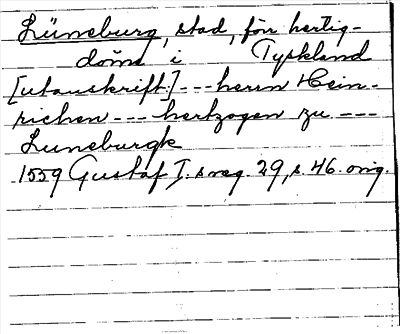 Lüneburg, stad, förr hertig-
döme i Tyskland
[utanskrift:] --- herrn Hein-
richen --- hertzogen zu ---
Luneburgk
1559 Gustaf I:s reg. 29, s. 46. orig.